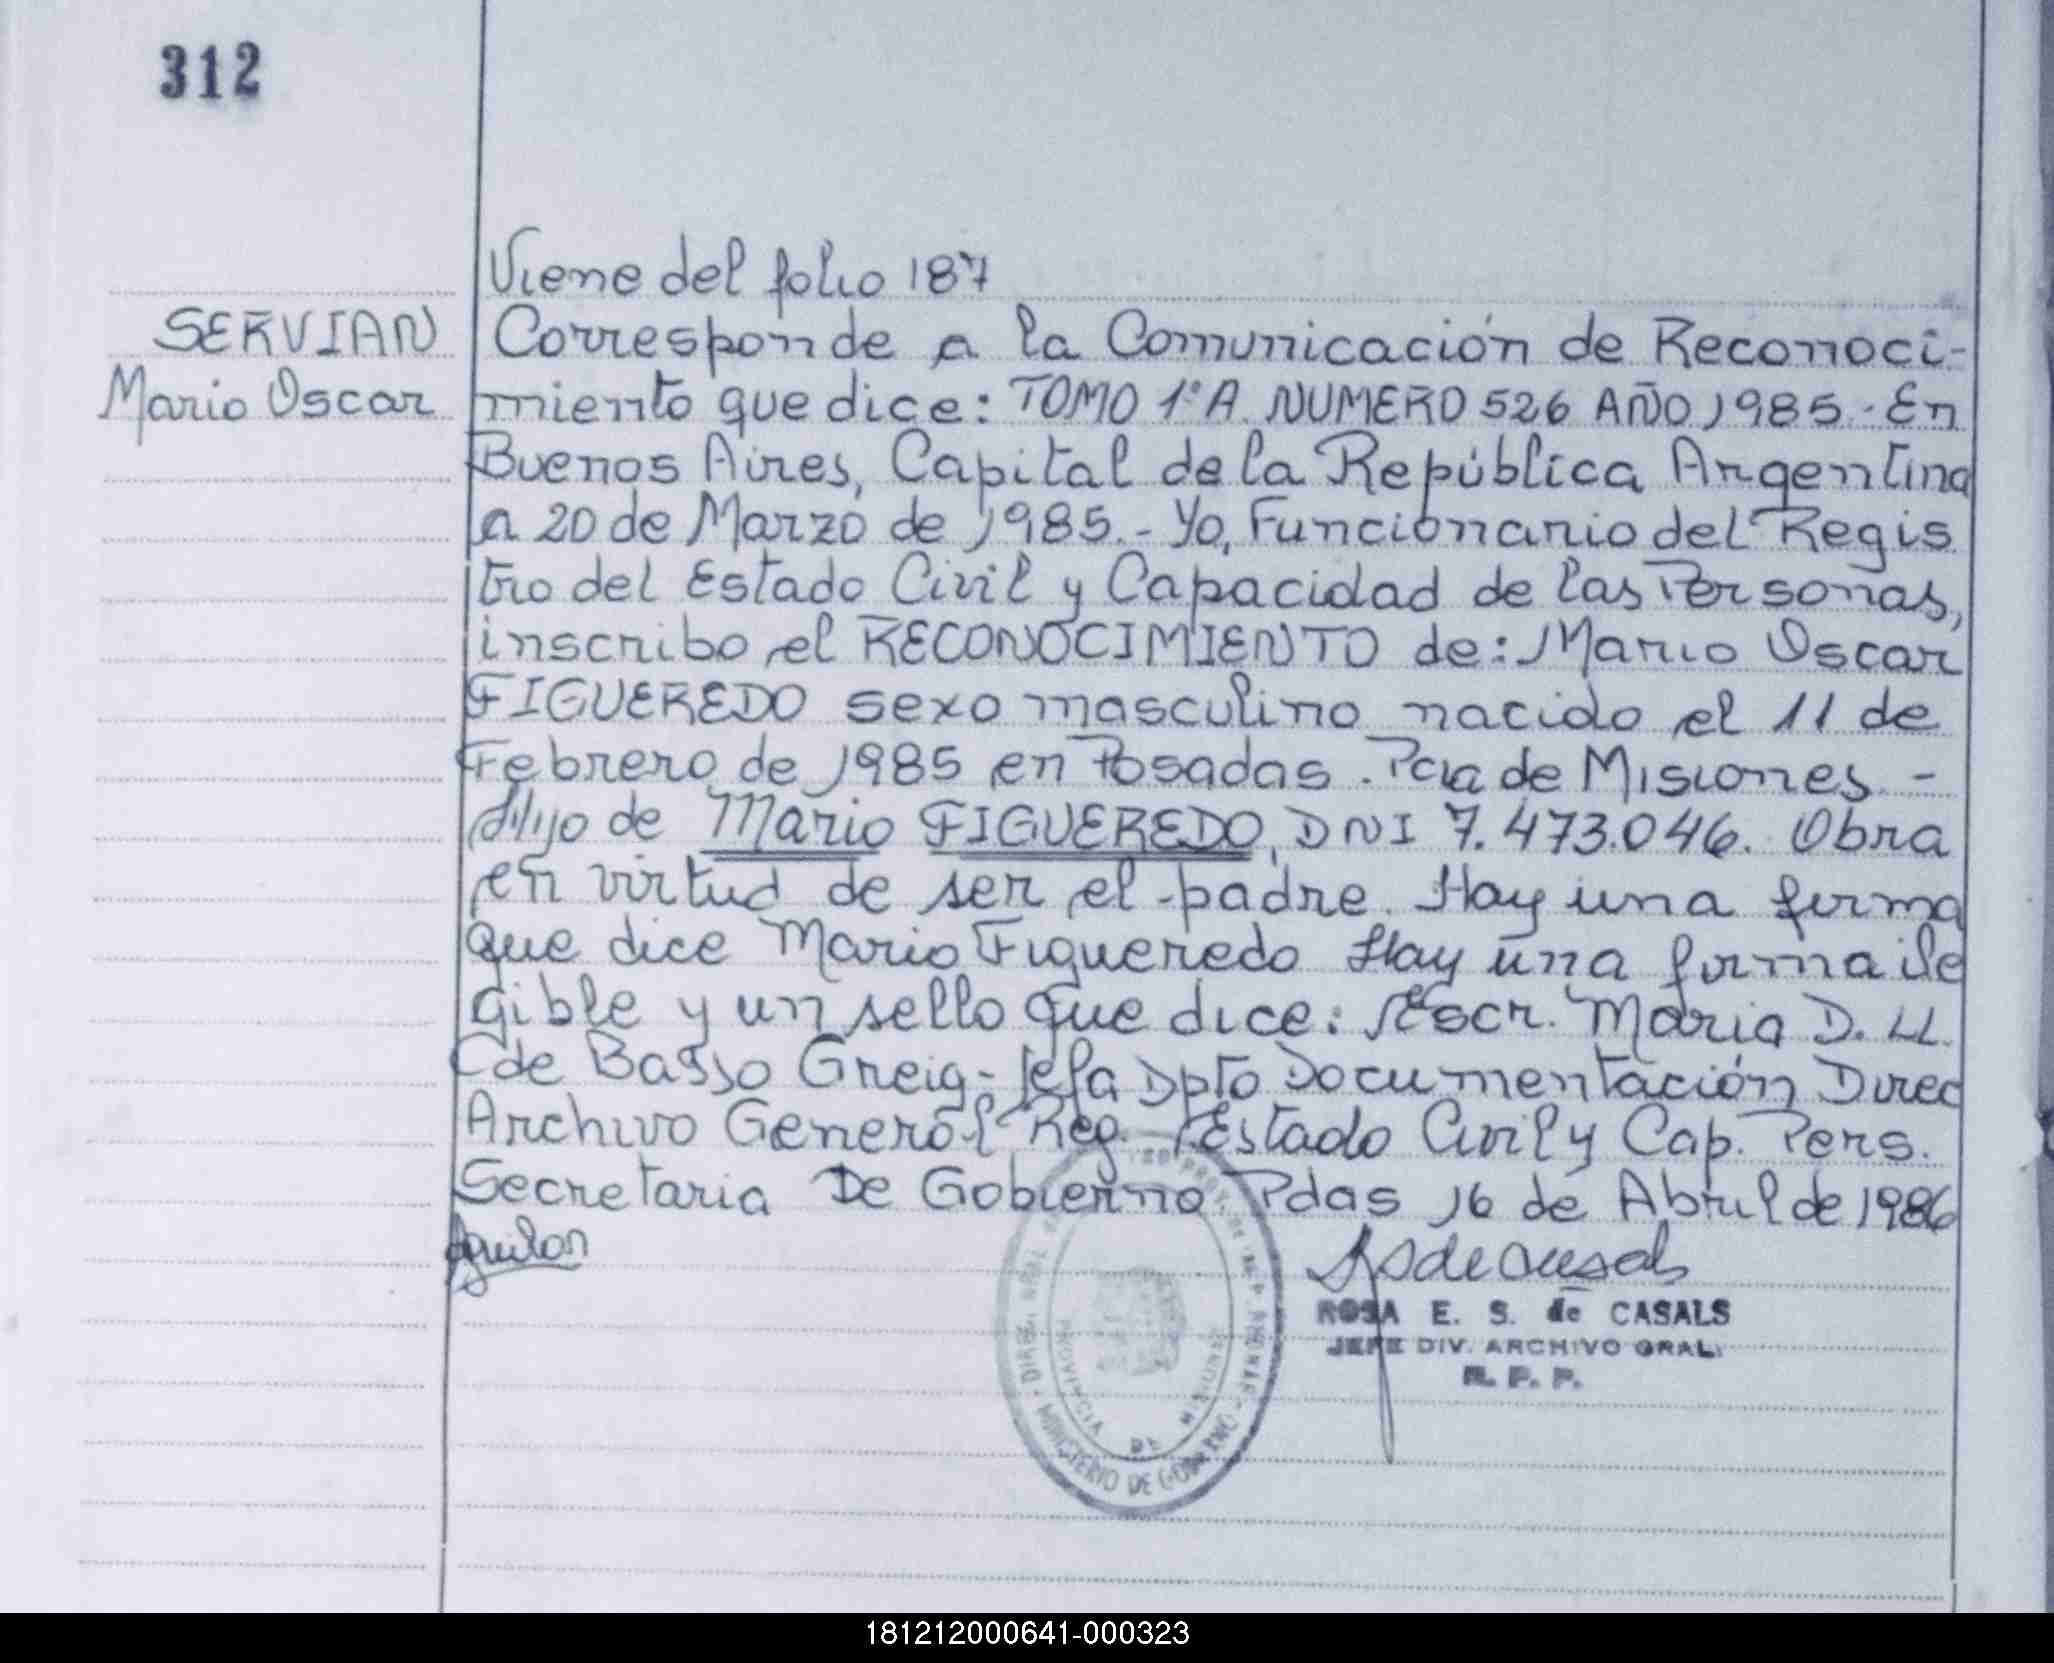 312
Viene del folio 187
SERVIAN
Mario Oscar
Corresponde a la Comunicación de Reconoci-
miento que dice: TOMO 1º A. NUMERO 526 AÑO 1985.- En
Buenos Aires, Capital de la República Argentina
a 20 de Marzo de 1985.- Yo, Funcionario del Regis
tro del Estado Civil y Capacidad de las Personas,
inscribo el RECONOCIMIENTO de: Mario Oscar
FIGUEREDO sexo masculino nacido el 11 de
Febrero de 1985 en Posadas. Pcia de Misiones. -
Hijo de Mario FIGUEREDO, DNI 7.473.046. Obra
en virtud de ser el padre. Hay una firma
que dice Mario Figueredo Hay una firma ile
gible y un sello que dice: Escr. Maria D. LL.
C de Basso Greig - Jefa Dpto Documentación Direc
Archivo General Reg. Estado Civil y Cap. Pers.
Secretaria De Gobierno Pdas 16 de Abril de 1986
ROSA E. S. de CASALS
JEFE DIV. ARCHIVO GRAL.
R. P. P.
PROVINCIA DE MISIONES
MINISTERIO DE GOBIERNO
181212000641-000323